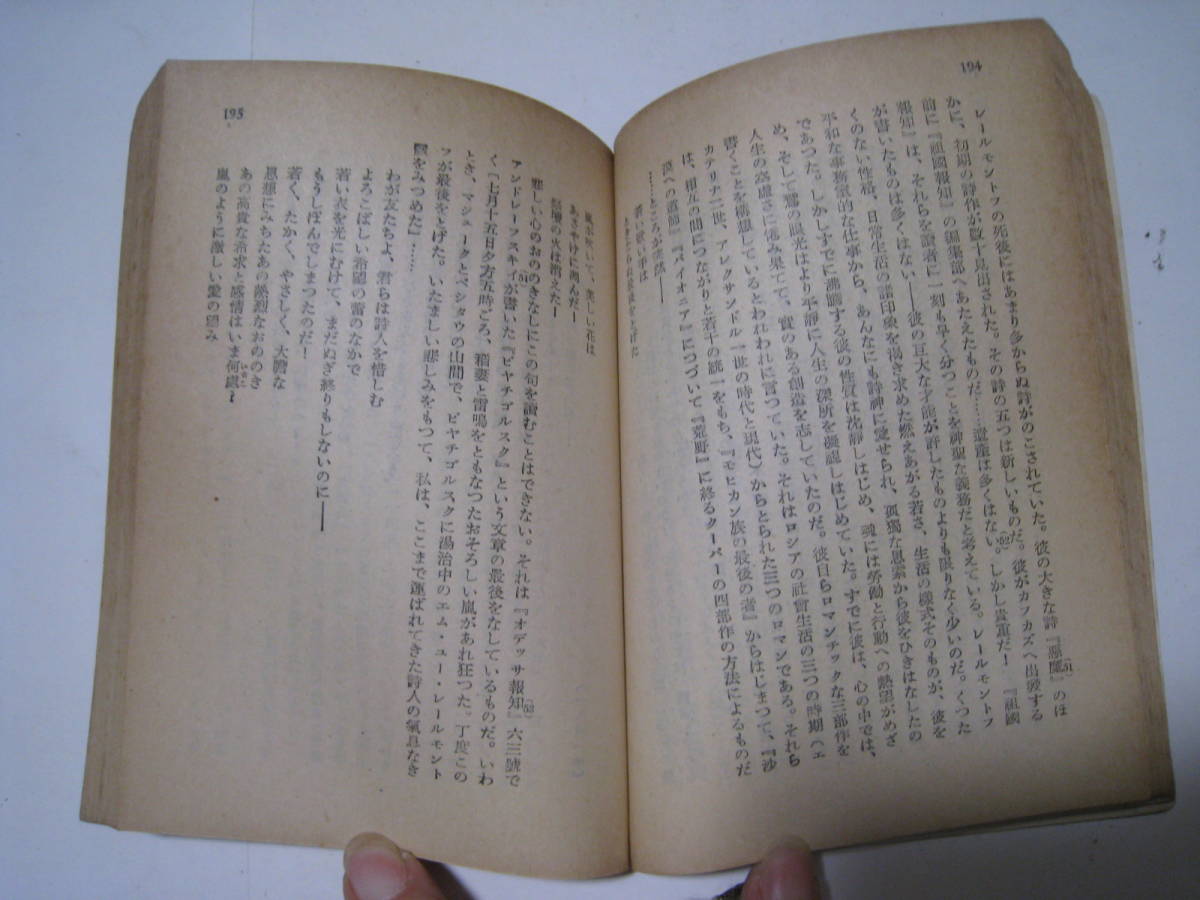 194
レールモントフの死後にはあまり多からぬ詩がのこされていた。彼の大きな詩『惡魔』(51)のほ
かに、初期の詩作が數十見出された。その詩の五つは新しいものだ。彼がカフカズへ出發する
前に『祖國報知』の編集部へあたえたものだ……遺產は多くはない。(52)しかし貴重だ! 『祖國
報知』は、それらを讀者に一刻も早く分つことを神聖な義務だと考えている。レールモントフ
が書いたものは多くはない――彼の巨大な才能が許したものよりも限りなく少いのだ。くつた
くのない性格、日常生活の諸印象を渇き求めた燃えあがる若さ、生活の樣式そのものが、彼を
平和な事務室的な仕事から、あんなにも詩神に愛せられ、孤獨な思索から彼をひきはなしたの
であつた。しかしすでに沸騰する彼の性質は沈靜しはじめ、魂には勞働と行動への熱望がめざ
め、そして鷲の眼光はより平靜に人生の深所を凝視しはじめていた。すでに彼は、心の中では、
人生の空虛さに倦み果てて、實のある創造を志していたのだ。彼自らロマンチックな三部作を
書くことを構想しているとわれわれに言つていた。それはロシアの社會生活の三つの時期(エ
カテリナ二世、アレクサンドル一世の時代と現代)からとられた三つのロマンである。それら
は、相互の間につながりと若干の統一をもち、『モヒカン族の最後の者』からはじまつて、『沙
漠への道師』『パイオニア』につづいて『荒野』に終るクーパーの四部作の方法によるものだ
……ところが突然――
若い歌い手は
195
嵐が吹いて、美しい花は
あさやけに凋んだ!
祭壇の火は消えた!
悲しい心のおののきなしにこの句を讀むことはできない。それは『オデッサ報知』(53)六三號で
アンドレーフスキイ(54)が書いた『ピヤチゴルスク』という文章の最後をなしているものだ。いわ
く「七月十五日夕方五時ごろ、稻妻と雷鳴をともなつたおそろしい嵐があれ狂つた。丁度この
とき、マシュークとベシタウの山間で、ピヤチゴルスクに湯治中のエム・ユー・レールモント
フが最後をとげた。いたましい悲しみをもつて、私は、ここまで運ばれてきた詩人の氣息なき
骸をみつめた」……
わが友たちよ、君らは詩人を惜しむ
よろこばしい希望の蕾のなかで
若い衣を光にむけて、まだぬぎ終りもしないのに――
もうしぼんでしまつたのだ!
若く、たかく、やさしく、大膽な
思想にみちたあの熱烈なおののき
あの高貴な希求・感情はいま何處?
嵐のように激しい愛の惱み